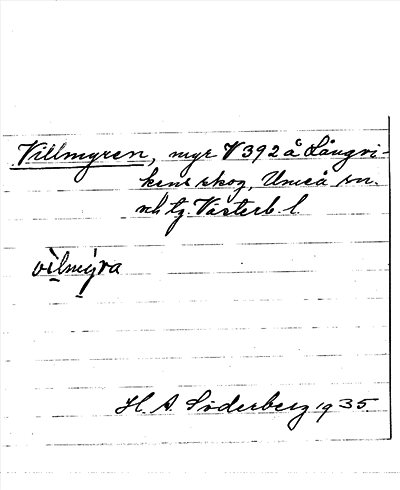 Villmyren, myr V 392 å Långvi-
kens skog, Umeå sn.
o. tg. Västerb. l.
vìlmýra
H. A. Söderberg 1935.